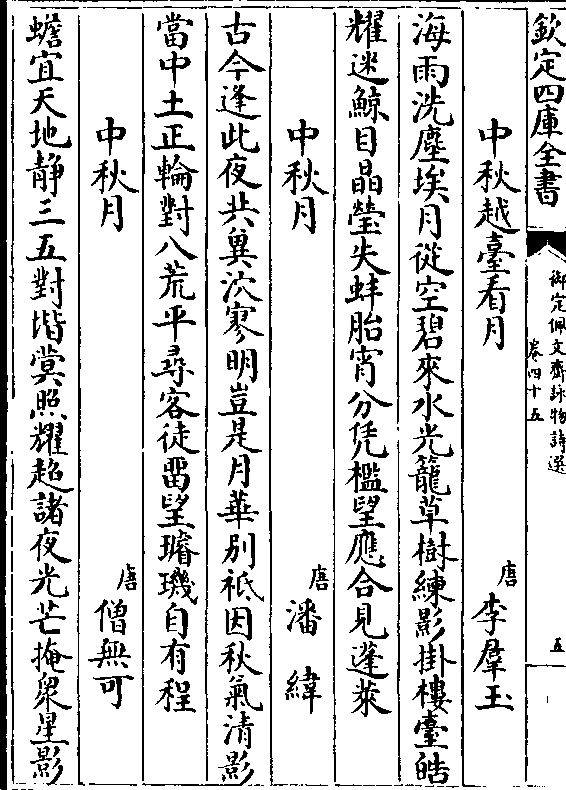 欽定四庫全書
御定佩文齋詠物詩選
卷四十五
五
中秋越臺看月
唐
李羣玉
海雨洗塵埃月從空碧來水光籠草樹練影掛樓臺皓
耀迷鯨目晶瑩失蚌胎宵分凭檻望應合見蓬萊
中秋月
唐
潘緯
古今逢此夜共冀泬寥明豈是月華別秪因秋氣清影
當中土正輪對八荒平尋客徒留望璿璣自有程
中秋月
唐
僧無可
蟾宜天地静三五對堦蓂照耀超諸夜光芒掩衆星影